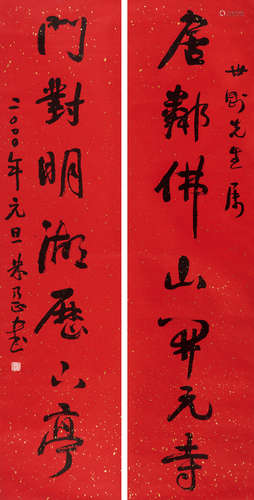 先生属
居鄰佛山開元寺
門對明湖歷下亭
二〇〇〇年元旦朱乃正書